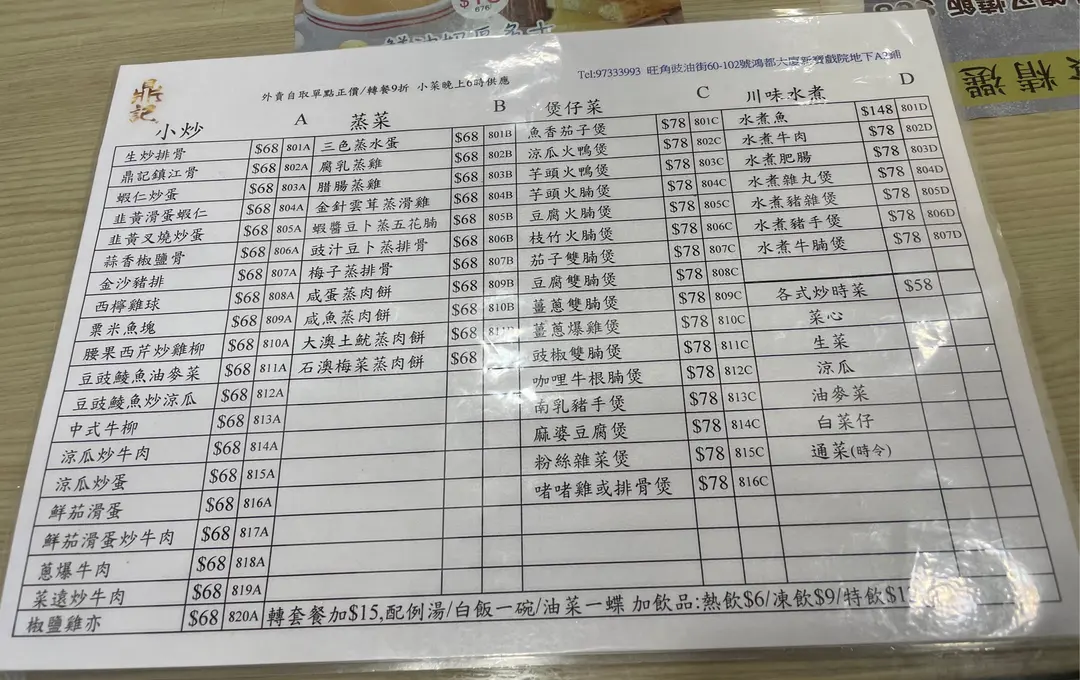 Tel:97333993 旺角豉油街60-102號鴻都大廈新寶戲院地下A2鋪
鼎記
外賣自取單點正價/轉餐9折 小菜晚上6時供應
小炒 A
生炒排骨 $68 801A
鼎記鎮江骨 $68 802A
蝦仁炒蛋 $68 803A
韭黃滑蛋蝦仁 $68 804A
韭黃叉燒炒蛋 $68 805A
蒜香椒鹽骨 $68 806A
金沙豬排 $68 807A
西檸雞球 $68 808A
粟米魚塊 $68 809A
腰果西芹炒雞柳 $68 810A
豆豉鯪魚油麥菜 $68 811A
豆豉鯪魚炒涼瓜 $68 812A
中式牛柳 $68 813A
涼瓜炒牛肉 $68 814A
涼瓜炒蛋 $68 815A
鮮茄滑蛋 $68 816A
鮮茄滑蛋炒牛肉 $68 817A
蔥爆牛肉 $68 818A
菜遠炒牛肉 $68 819A
椒鹽雞亦 $68 820A
蒸菜 B
三色蒸水蛋 $68 801B
腐乳蒸雞 $68 802B
腊腸蒸雞 $68 803B
金針雲茸蒸滑雞 $68 804B
蝦醬豆卜蒸五花腩 $68 805B
豉汁豆卜蒸排骨 $68 806B
梅子蒸排骨 $68 807B
咸蛋蒸肉餅 $68 809B
咸魚蒸肉餅 $68 810B
大澳土魷蒸肉餅 $68 811B
石澳梅菜蒸肉餅 $68
煲仔菜 C
魚香茄子煲 $78 801C
涼瓜火鴨煲 $78 802C
芋頭火鴨煲 $78 803C
芋頭火腩煲 $78 804C
豆腐火腩煲 $78 805C
枝竹火腩煲 $78 806C
茄子雙腩煲 $78 807C
豆腐雙腩煲 $78 808C
薑蔥雙腩煲 $78 809C
薑蔥爆雞煲 $78 810C
豉椒雙腩煲 $78 811C
咖哩牛根腩煲 $78 812C
南乳豬手煲 $78 813C
麻婆豆腐煲 $78 814C
粉絲雜菜煲 $78 815C
啫啫雞或排骨煲 $78 816C
川味水煮 D
水煮魚 $148 801D
水煮牛肉 $78 802D
水煮肥腸 $78 803D
水煮雜丸煲 $78 804D
水煮豬雜煲 $78 805D
水煮豬手煲 $78 806D
水煮牛腩煲 $78 807D
各式炒時菜 $58
菜心
生菜
涼瓜
油麥菜
白菜仔
通菜(時令)
轉套餐加$15,配例湯/白飯一碗/油菜一蝶 加飲品:熱飲$6/凍飲$9/特飲